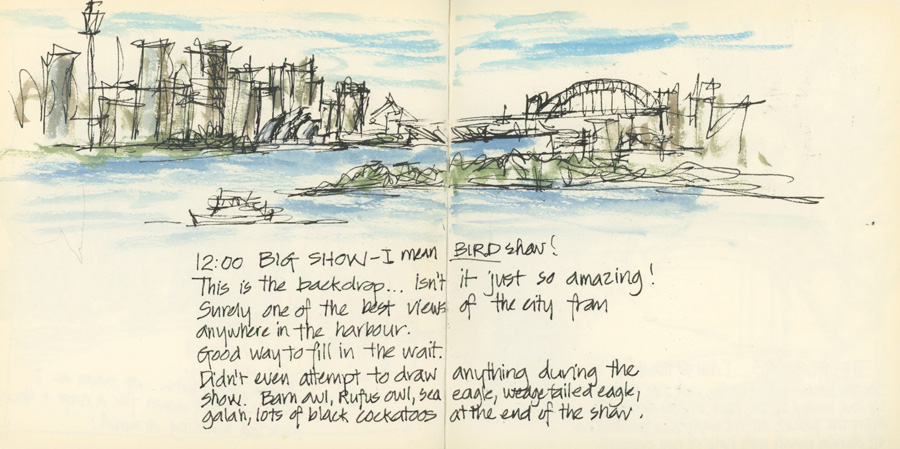 12:00 BIG SHOW - I mean BIRD show!
This is the backdrop... isn't it just so amazing!
Surely one of the best views of the city from
anywhere in the harbour.
Good way to fill in the wait.
Didn't even attempt to draw anything during the
show. Barn owl, Rufus owl, sea eagle, wedge tailed eagle,
galah, lots of black cockatoos at the end of the show.